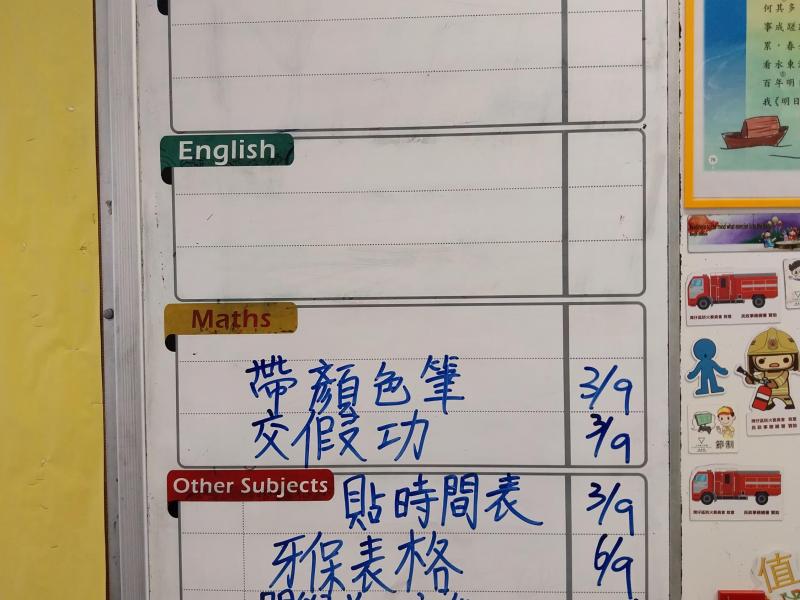 English
Maths
帶顏色筆 3/9
交假功 3/9
Other Subjects
貼時間表 3/9
牙保表格 6/9
何其多
事成蹉
累，春
看水東
百年明
我《明日
節制
值